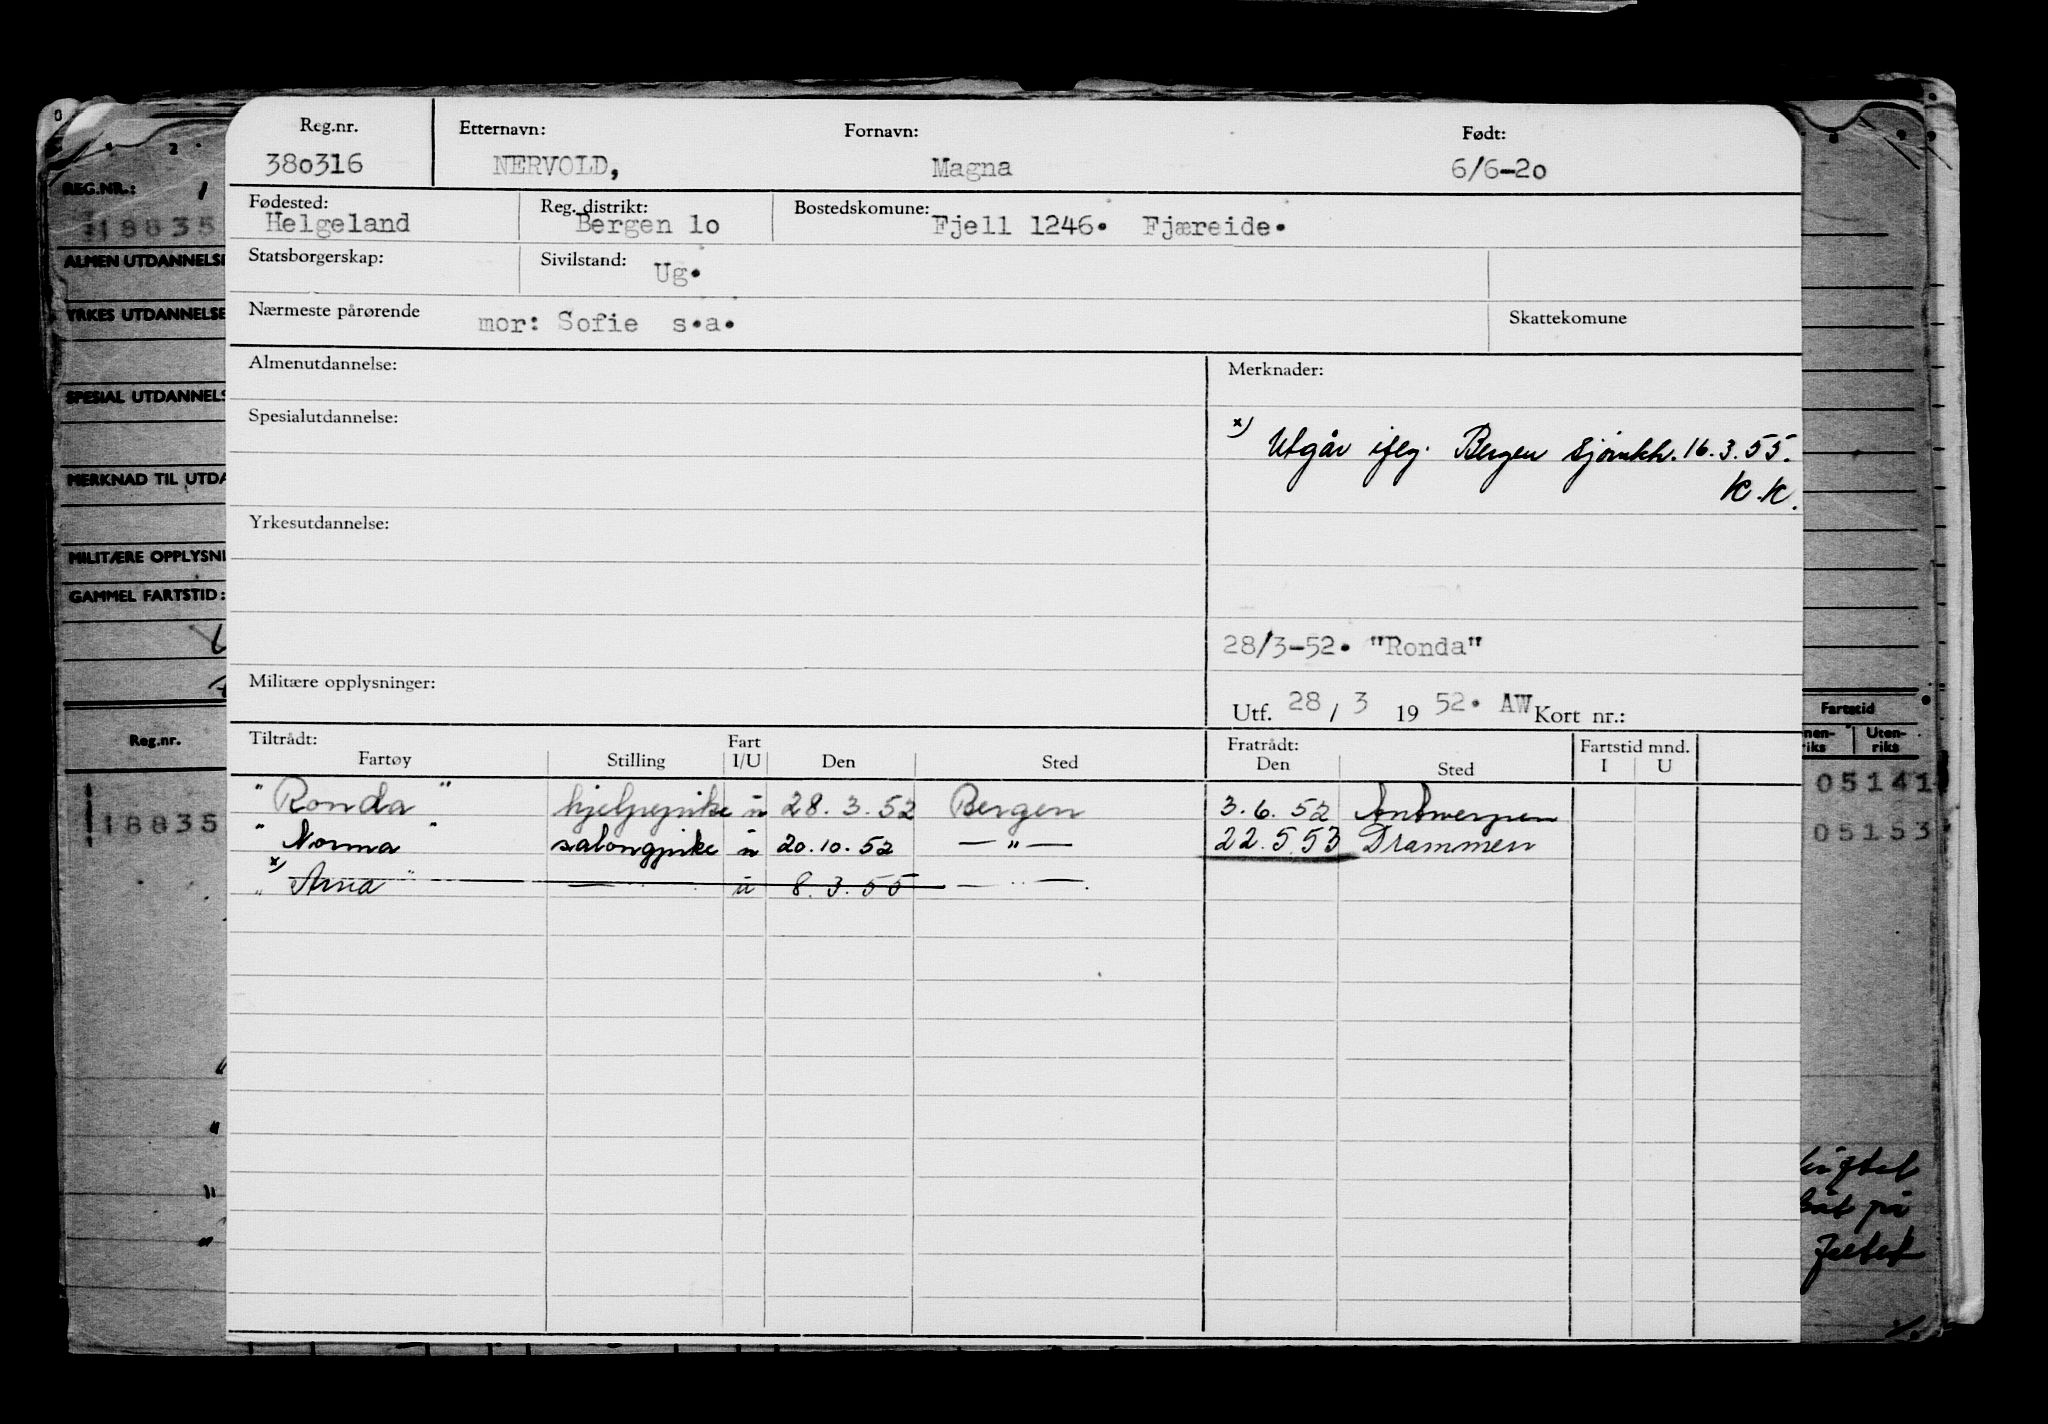 Reg.nr. Etternavn: Fornavn: Født:
380316 NERVOLD, Magna 6/6-20
Fødested: Reg. distrikt: Bostedskomune:
Helgeland Bergen 1o Fjell 1246. Fjæreide.
Statsborgerskap: Sivilstand: Ug.
Nærmeste pårørende mor: Sofie s.a. Skattekomune
Almenutdannelse: Merknader:
Spesialutdannelse:
x) Utgår iflg. Bergen sjømkk. 16.3.55.
K.K.
Yrkesutdannelse:
28/3-52. "Ronda"
Militære opplysninger:
Utf. 28 / 3 19 52. AW Kort nr.:
Tiltrådt: Fratrådt: Fartstid mnd.
Fartøy Stilling Fart I/U Den Sted Den Sted I U
"Ronda" hjelpepike u 28.3.52 Bergen 3.6.52 Antwerpen
"Norma" salongpike u 20.10.52 — " — 22.5.53 Drammen
x)
" " — u 8.3.55 — " —
REG.NR.: 1
18835
ALMEN UTDANNELSE
YRKES UTDANNELSE
SPESIAL UTDANNELS
MERKNAD TIL UTDA
MILITÆRE OPPLYSNI
GAMMEL FARTSTID:
Reg.nr.
18835
Fartstid
nen-riks Uten-riks
05141
05153
på